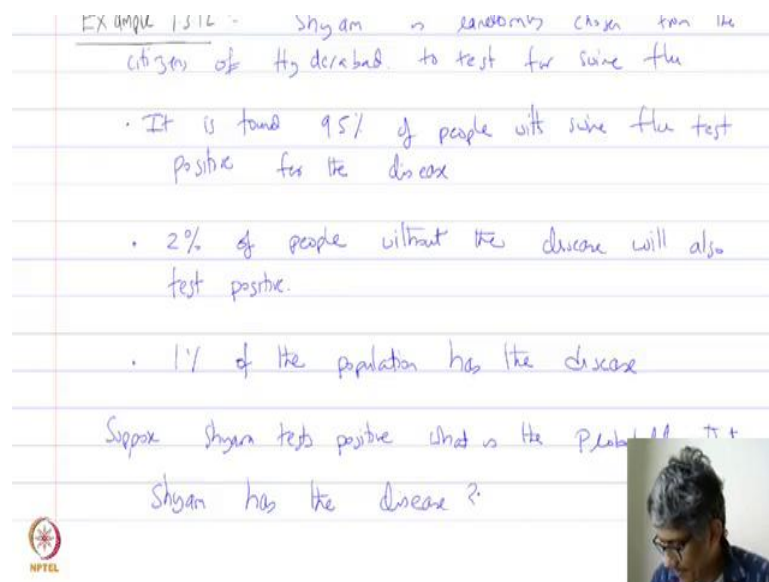 Example 1.3.12 :- Shyam is randomly chosen from the
citizens of Hyderabad. to test for swine flu
. It is found 95% of people with swine flu test
positive for the disease
. 2% of people without the disease will also
test positive.
. 1% of the population has the disease
Suppose Shyam tests positive what is the
Shyam has the disease ?
NPTEL